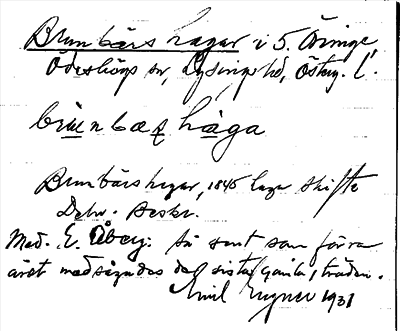 Brunbärshagar i S. Åringe,
Ödeshögs sn, Lysings hd, Östg. l.
brünbæɽhåga
Brunbärshagar, 1845 laga skifte
Beskr.
Med. E. Åberg. Så sent som förra
året nedsågades det sista gamla träden.
Emil 1931